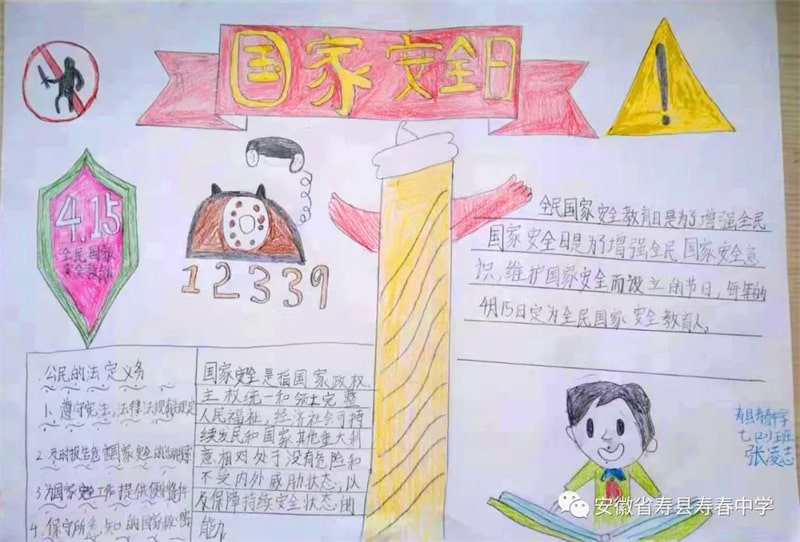 国家安全日
4.15
全民国家
安全教育
12339
全民国家安全教育日是为了增强全民
国家安全日是为了增强全民国家安全意
识,维护国家安全而设立的节日,每年的
4月15日定为全民国家安全教育人。
公民的法定义务
1.遵守宪法,法律法规
2.及时报告危害国家安全
3.为国家安全工作提供便利条件
4.保守所知的国家秘密
国家安全是指国家政权,
主权统一和领土完整
人民福祉,经济社会可持
续发民和国家其他重大利
意相对处于没有危险和
不受内外威胁状态,以
及保障持续安全状态的
能力
寿县寿春中学
七(20)班
张凌志
安徽省寿县寿春中学